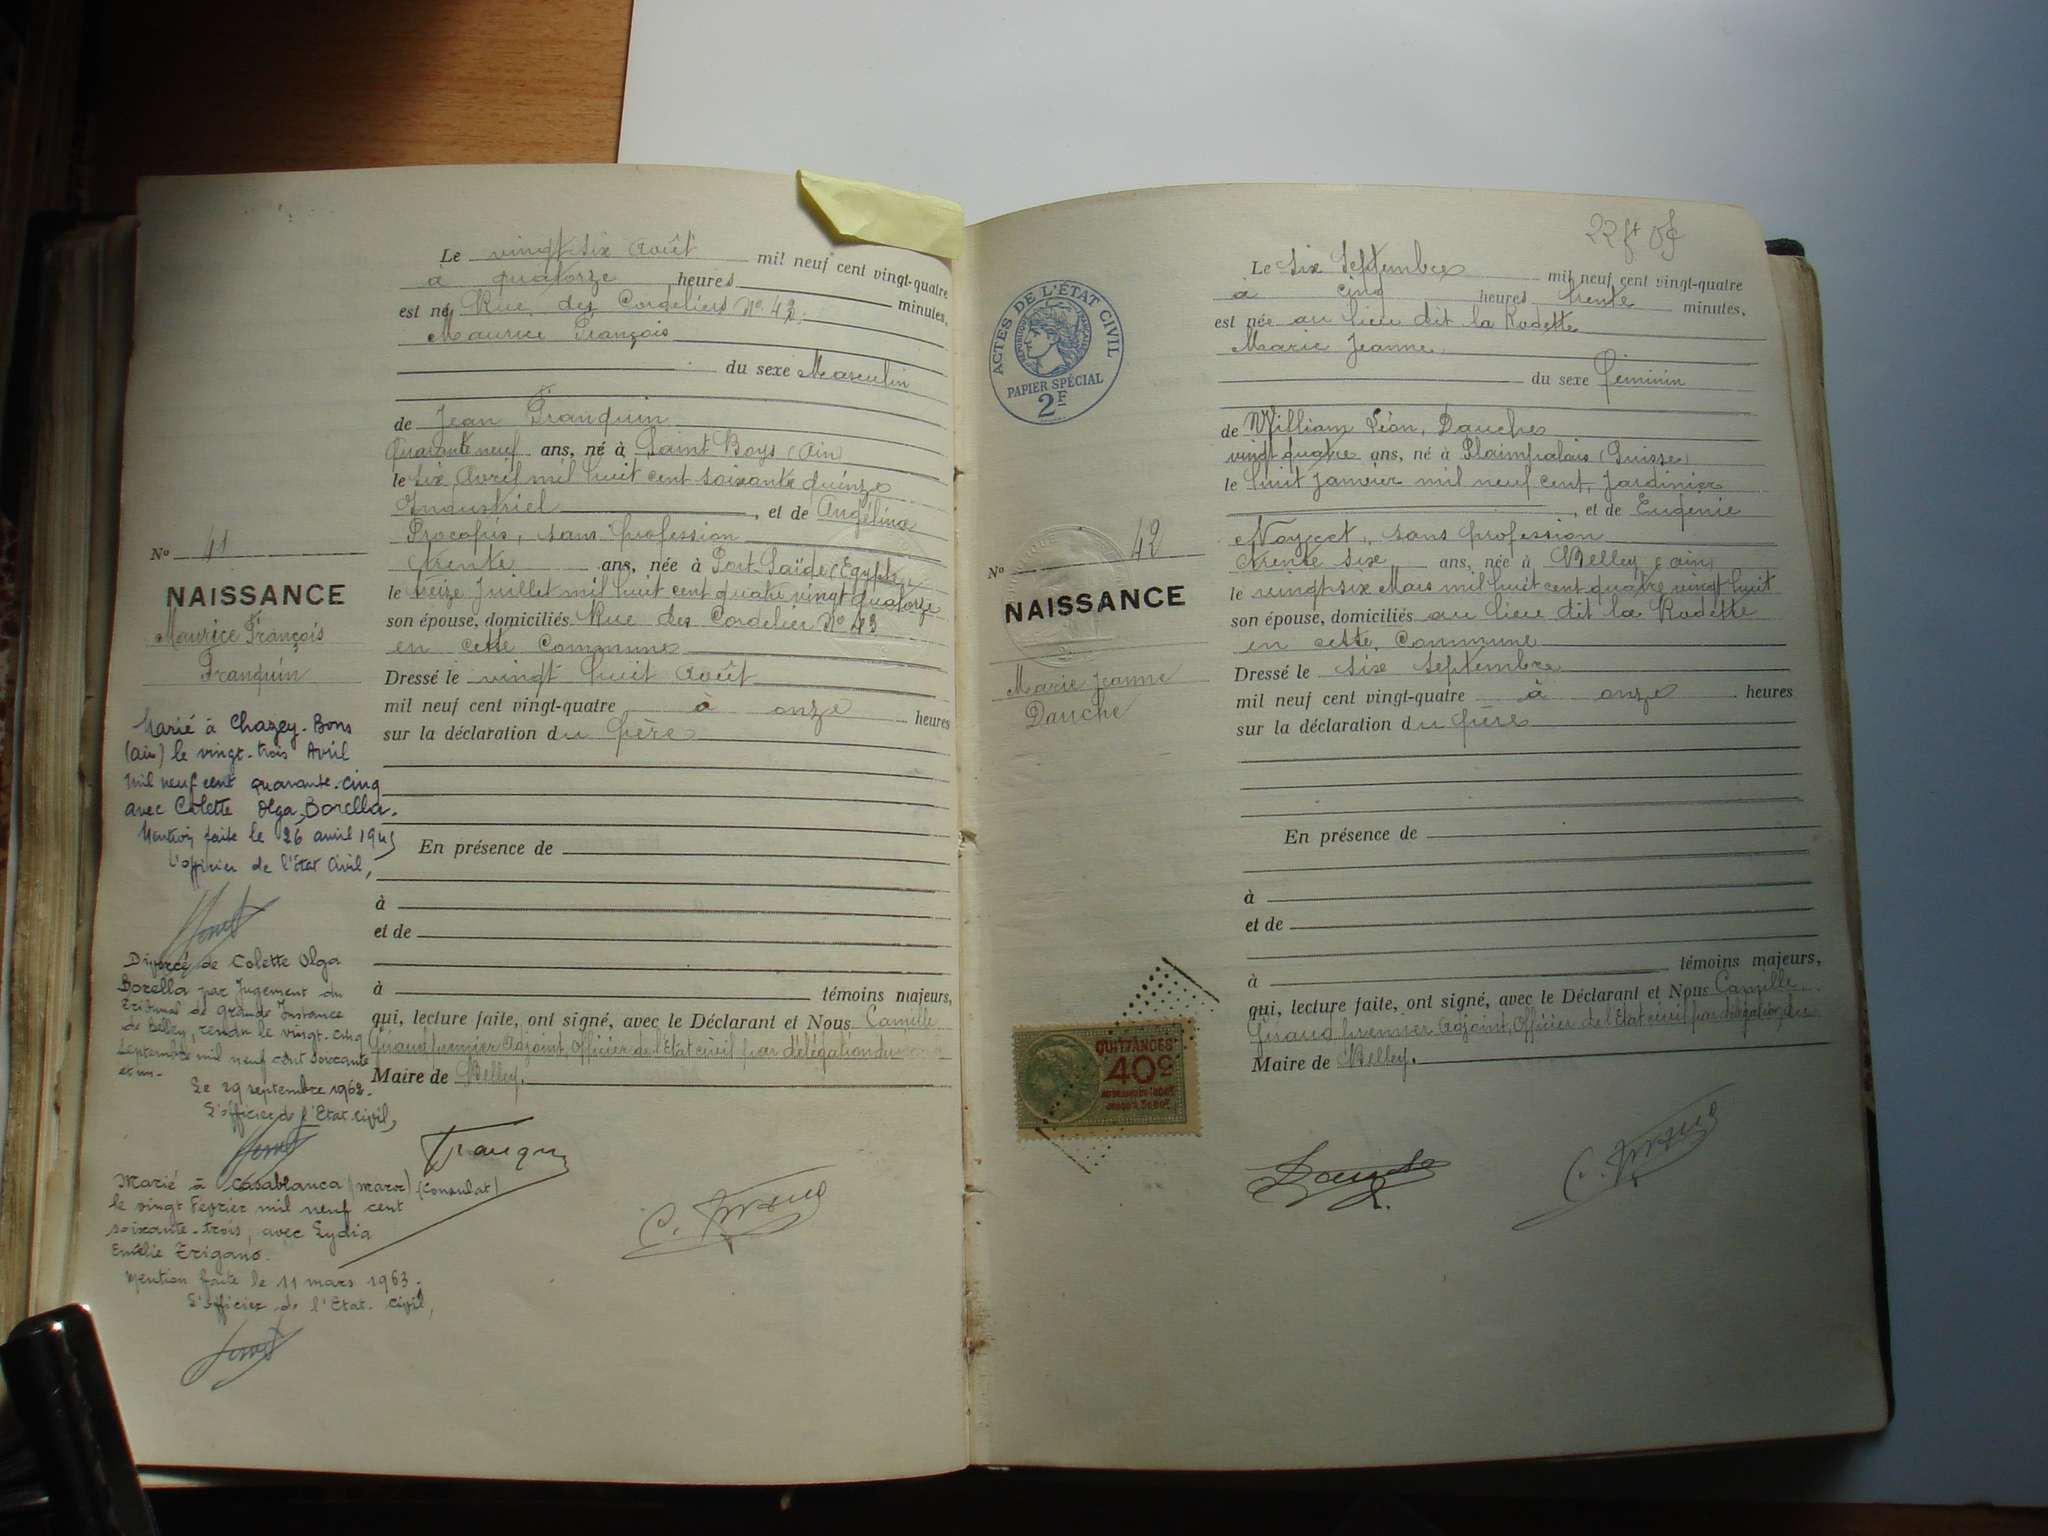 Le vingt six Août mil neuf cent vingt-quatre
à quatorze heures minutes,
est né Rue des Cordeliers No. 43.
Maurice François
du sexe Masculin
de Jean Tranquin
Quarante neuf ans, né à Saint Boys (Ain)
le six Avril mil huit cent soixante quinze
Industriel, et de Angéline
Procopis, sans profession
trente ans, née à Port-Saïde (Egypte)
le seize Juillet mil huit cent quatre vingt quatorze
son épouse, domiciliés Rue des Cordelier No 43
en cette Commune
Dressé le vingt huit Août
mil neuf cent vingt-quatre à onze heures
sur la déclaration du père
En présence de
à
et de
à témoins majeurs,
qui, lecture faite, ont signé, avec le Déclarant et Nous Camille
Giraud premier Adjoint, Officier de l'Etat civil par délégation du
Maire de Belley.
No 41
NAISSANCE
Maurice François
Tranquin
Marié à Chazey-Bons
(ain) le vingt-trois Avril
mil neuf cent quarante-cinq
avec Colette Olga Borella.
Mention faite le 26 avril 1945
L'officier de l'Etat Civil,
Divorcé de Colette Olga
Borella par Jugement du
Tribunal de Grande Instance
de Belley, rendu le vingt-cinq
septembre mil neuf cent soixante
et un.
Le 29 septembre 1962.
L'officier de l'Etat-Civil,
Marié à Casablanca (Maroc) (Consulat)
le vingt Février mil neuf cent
soixante-trois, avec Lydia
Emélie Trigano.
Mention faite le 11 mars 1963.
L'officier de l'Etat-Civil,
22 ft
Le six Septembre mil neuf cent vingt-quatre
à cinq heures trente minutes,
est née au lieu dit la Rodette
Marie Jeanne
du sexe féminin
de William Léon, Dauche
vingt quatre ans, né à Plaimpalais (Suisse)
le huit janvier mil neuf cent, jardinier
, et de Eugénie
Noyret, sans profession
trente six ans, née à Belley (ain)
le vingt-six Mars mil huit cent quatre vingt huit
son épouse, domiciliés au lieu dit la Rodette
en cette Commune
Dressé le six septembre
mil neuf cent vingt-quatre à onze heures
sur la déclaration du père
En présence de
à
et de
à témoins majeurs,
qui, lecture faite, ont signé, avec le Déclarant et Nous Camille
Giraud premier Adjoint, Officier de l'Etat civil par délégation du
Maire de Belley.
ACTES DE L'ÉTAT CIVIL
RÉPUBLIQUE FRANÇAISE
PAPIER SPÉCIAL
2F
No 42
NAISSANCE
Marie Jeanne
Dauche
QUITTANCES
40c